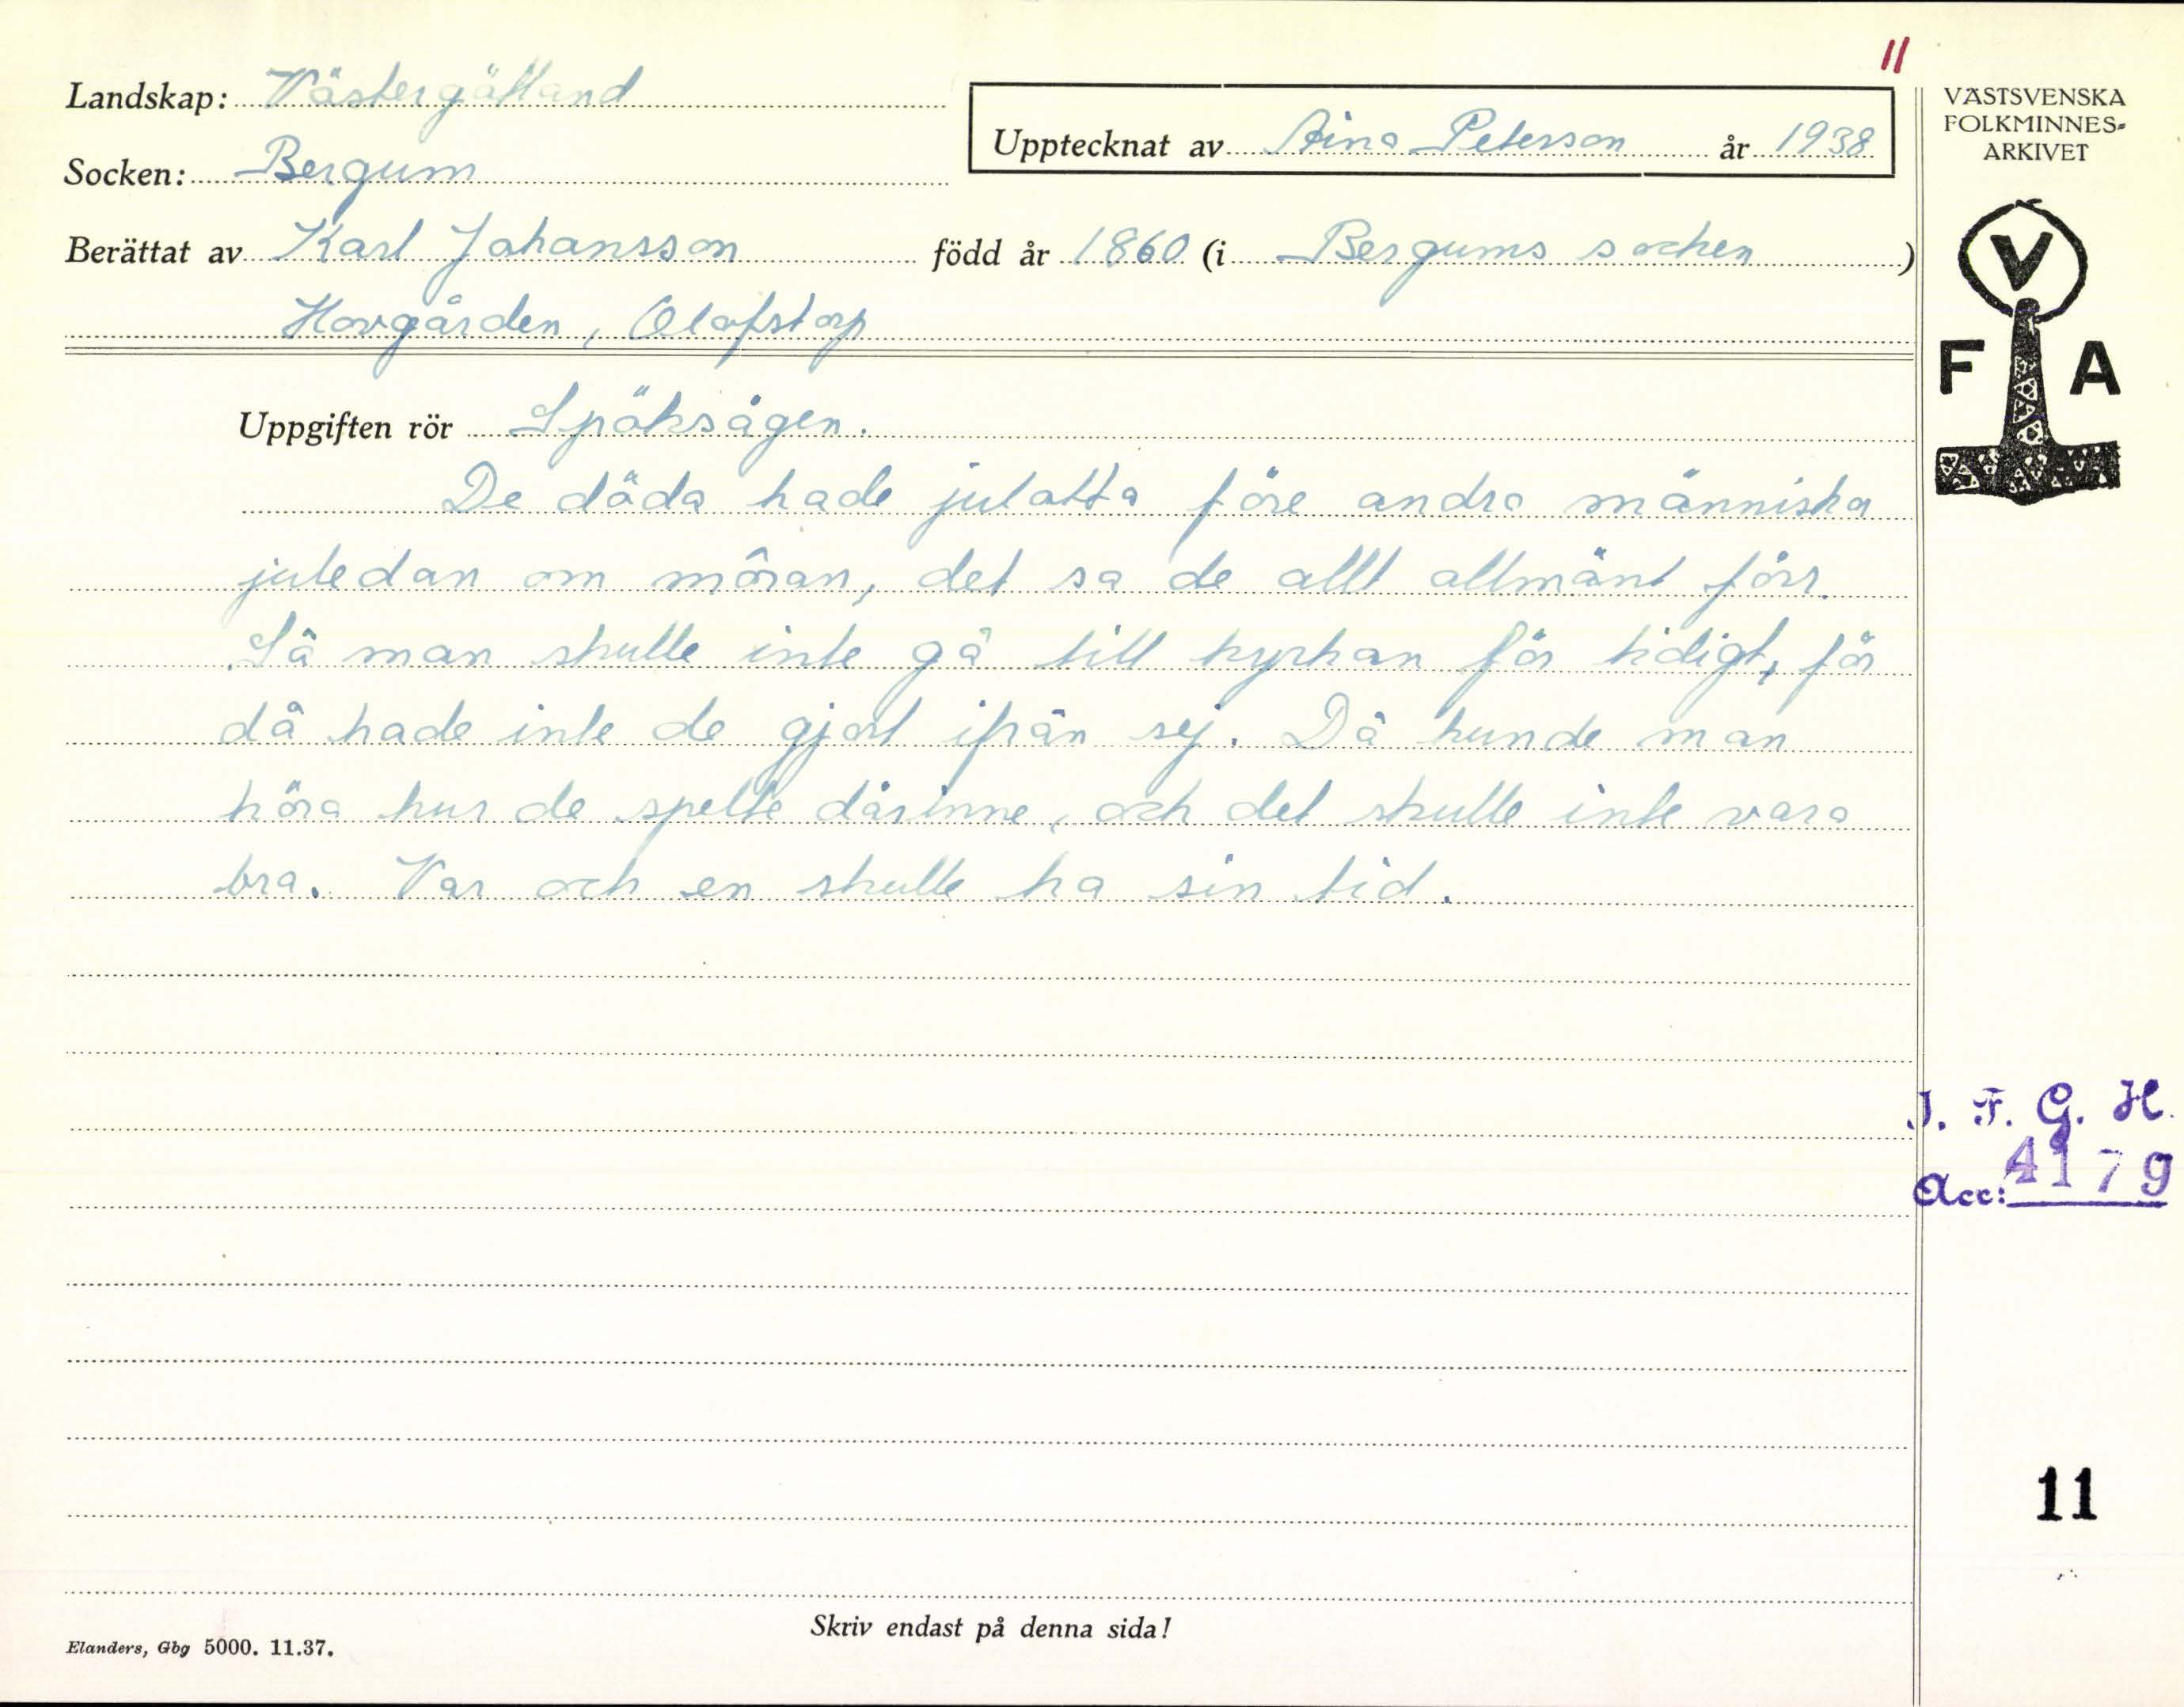 11
Landskap: Västergötland
Upptecknat av Aina Peterson år 1938
Socken: Bergum
Berättat av Karl Johansson född år 1860 (i Bergums socken)
Hovgården, Olofstorp
VÄSTSVENSKA
FOLKMINNES-
ARKIVET
V
F A
Uppgiften rör Spöksägen.
De döda hade julotta före andra människor
juledan om môran, det sa de allt allmänt förr.
Så man skulle inte gå till kyrkan för tidigt, för
då hade inte de gjort ifrån sej. Då kunde man
höra hur de spelte därinne, och det skulle inte vara
bra. Var och en skulle ha sin tid.
I. F. G. H.
Acc: 4179
11
Skriv endast på denna sida!
Elanders, Gbg 5000. 11.37.